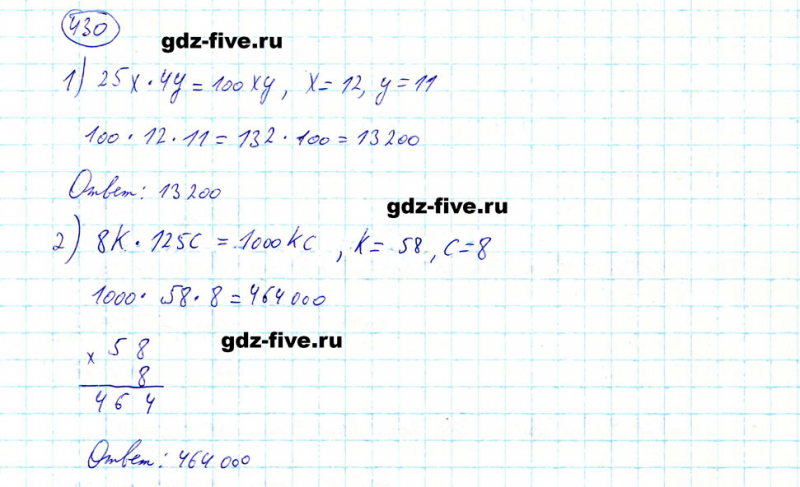 430
gdz-five.ru
1) 25x · 4y = 100xy, x = 12, y = 11
100 · 12 · 11 = 132 · 100 = 13200
Ответ: 13200
gdz-five.ru
2) 8k · 125c = 1000kc, k = 58, c = 8
1000 · 58 · 8 = 464000
gdz-five.ru
x 58
8
464
Ответ: 464000